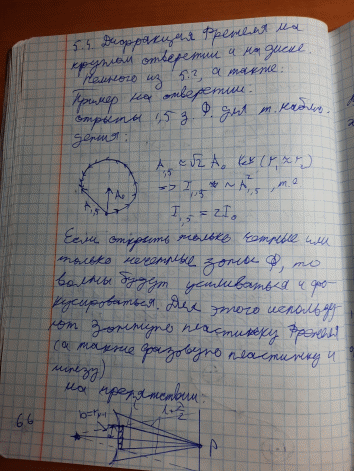 5.5. Дифракция Френеля на
круглом отверстии и на диске.
Немного из 5.2, а также:
Пример на отверстии.
открыты 1,5 з. Ф. для т. наблю-
дения:
A₁,₅ ≈ √2 A₀
A₀
A₁,₅
=> I₁,₅ ~ A²₁,₅, т.е
I₁,₅ = 2I₀
Если открыть только четные или
только нечетные зоны Ф, то
волны будут усиливаться и фо-
кусироваться. Для этого использу-
ют зонную пластинку Френеля
(а также фазовую пластинку и
линзу)
на препятствии:
P